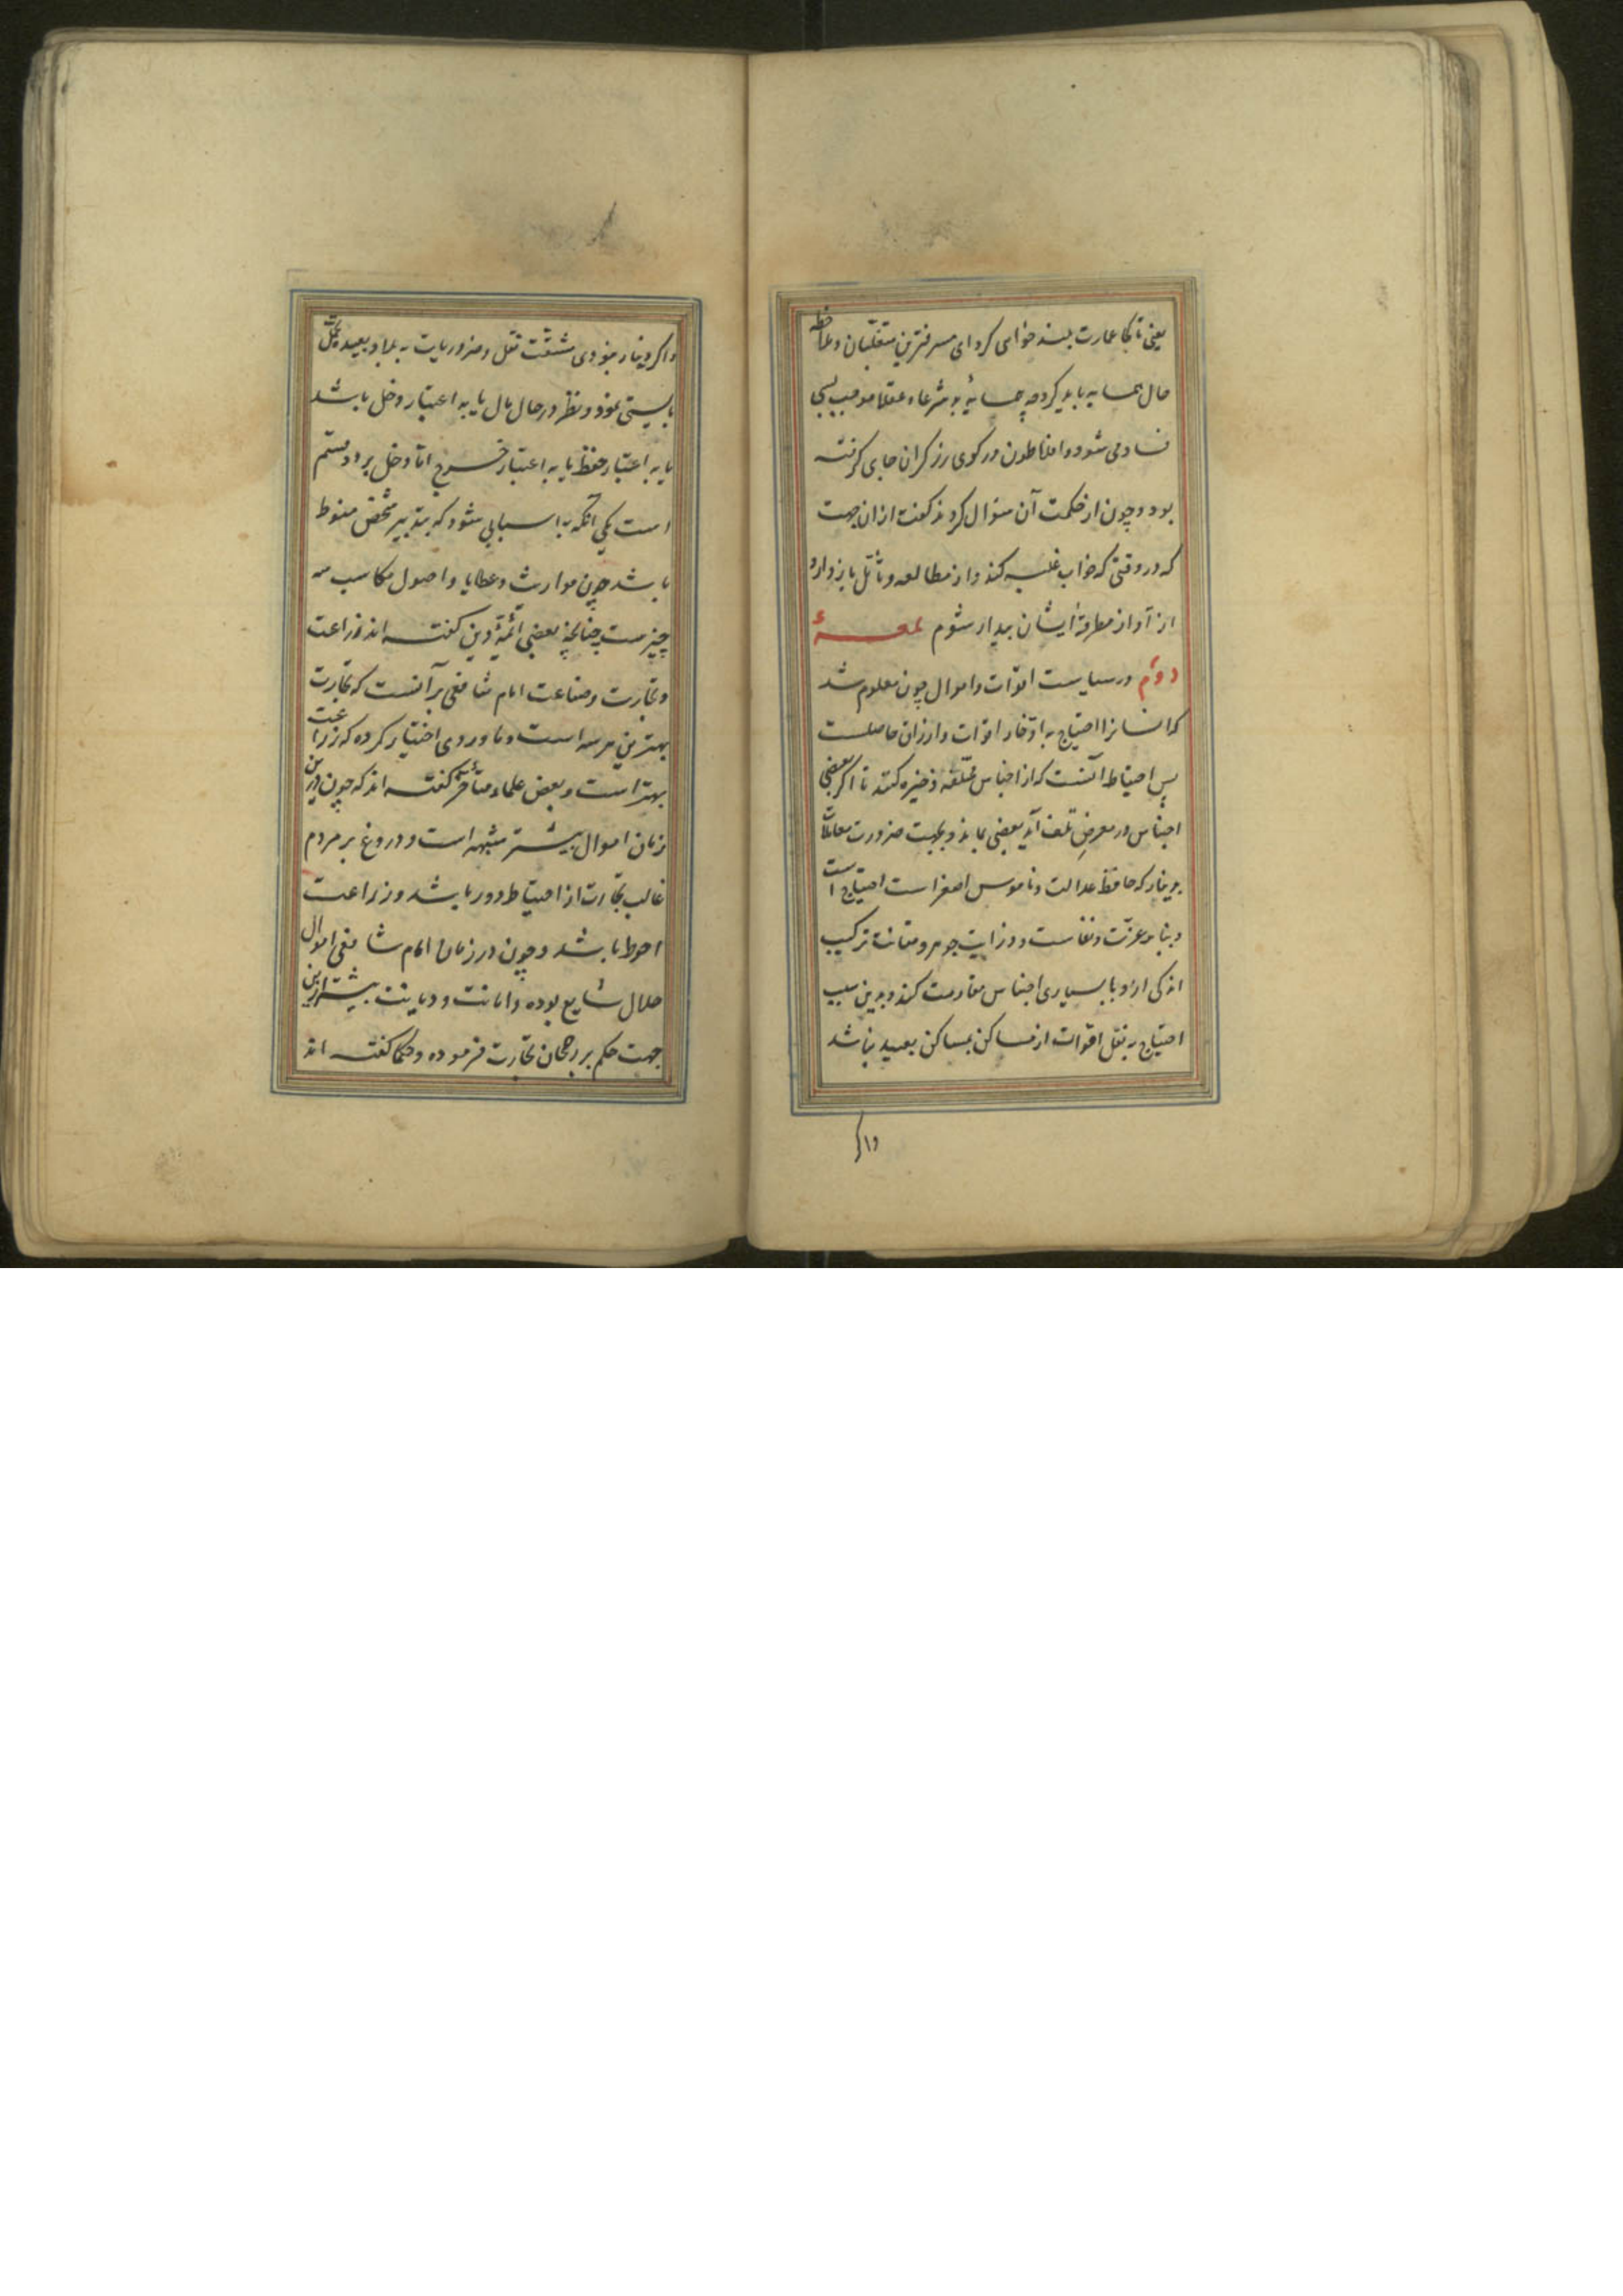 یعنی تا کجا عمارت بلند خواهی کرد ای مسرفترین متغلبان و ملاحظه
حال همسایه باید کرد چه همسایهٔ بد شرعا و عقلا موجب بسی
فساد می شود و افلاطون در کوی زرگران جای گرفته
بود و چون از حکمت آن سؤال کردند گفت از ان جهت
که در وقتی که خواب غلبه کند و از مطالعه و تأمل باز دارد
از آواز مطرقهٔ ایشان بیدار شوم لمعهٔ
دوم در سیاست اقوات و اموال چون معلوم شد
که انسانرا احتیاج به ادخار اقوات و ارزاق حاصلست
پس احتیاط آنست که از اجناس مختلفه ذخیره کنند تا اگر بعضی
اجناس در معرض تلف آید بعضی بماند و بجهت ضرورت معاملات
بدینار که حافظ عدالت و ناموس اصغر است احتیاج است
و بنا بر عزت و نفاست و رزانت جوهر و متانت ترکیب
اندکی ازو با بسیاری اجناس مقاومت کند و بدین سبب
احتیاج به نقل اقوات از مساکن بمساکن بعید نباشد
واگر
و اگر دینار نبودی مشقت نقل ضروریات به بلاد بعیده تحمل
بایستی نمود و نظر در حال مال یا به اعتبار دخل باشد
یا به اعتبار حفظ یا به اعتبار خرج اما دخل بر دو قسم
است یکی آنکه به اسبابی شود که بتدبیر شخص منوط
باشد چون مواریث و عطایا و اصول مکاسب سه
چیزست چنانچه بعضی ائمهٔ دین گفته اند زراعت
و تجارت و صناعت امام شافعی بر آنست که تجارت
بهترین هر سه است و ماوردی اختیار کرده که زراعت
بهتر است و بعض علماء متأخر گفته اند که چون درین
زمان اموال بیشتر مشبهه است و دروغ بر مردم
غالب تجارت از احتیاط دور باشد و زراعت
احوط باشد و چون در زمان امام شافعی اموال
حلال شایع بوده و امانت و دیانت بیشتر ازین
جهت حکم بر رجحان تجارت فرموده و حکما گفته اند